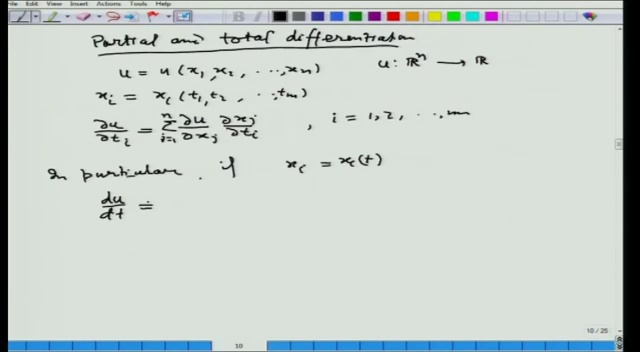 File Edit View Insert Actions Tools Help
Partial and total differentiation
u = u (x₁, x₂, ..., xₙ) u: ℝⁿ → ℝ
xᵢ = xᵢ (t₁, t₂, ..., tₘ)
∂u/∂tᵢ = Σⱼ₌₁ⁿ ∂u/∂xⱼ ∂xⱼ/∂tᵢ , i = 1, 2, ..., m
In particular, if xᵢ = xᵢ(t)
du/dt =
10 / 25
10